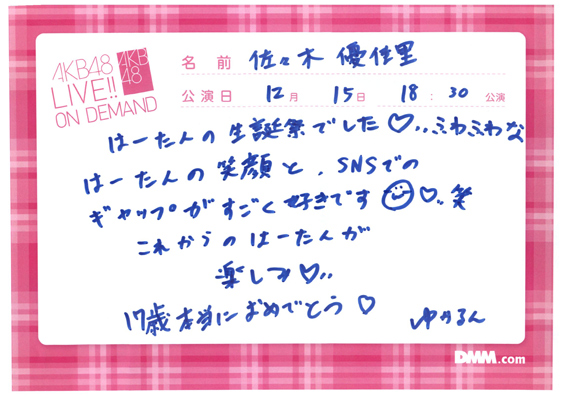 AKB48
LIVE!!
ON DEMAND
AKB
48
名前 佐々木優佳里
公演日 12月 15日 18:30 公演
はーたんの生誕祭でした♡..ふわふわな
はーたんの笑顔と、SNSでの
ギャップがすごく好きです☺♡..笑
これからのはーたんが
楽しみ♡..
17歳本当におめでとう♡
ゆかるん
DMM.com